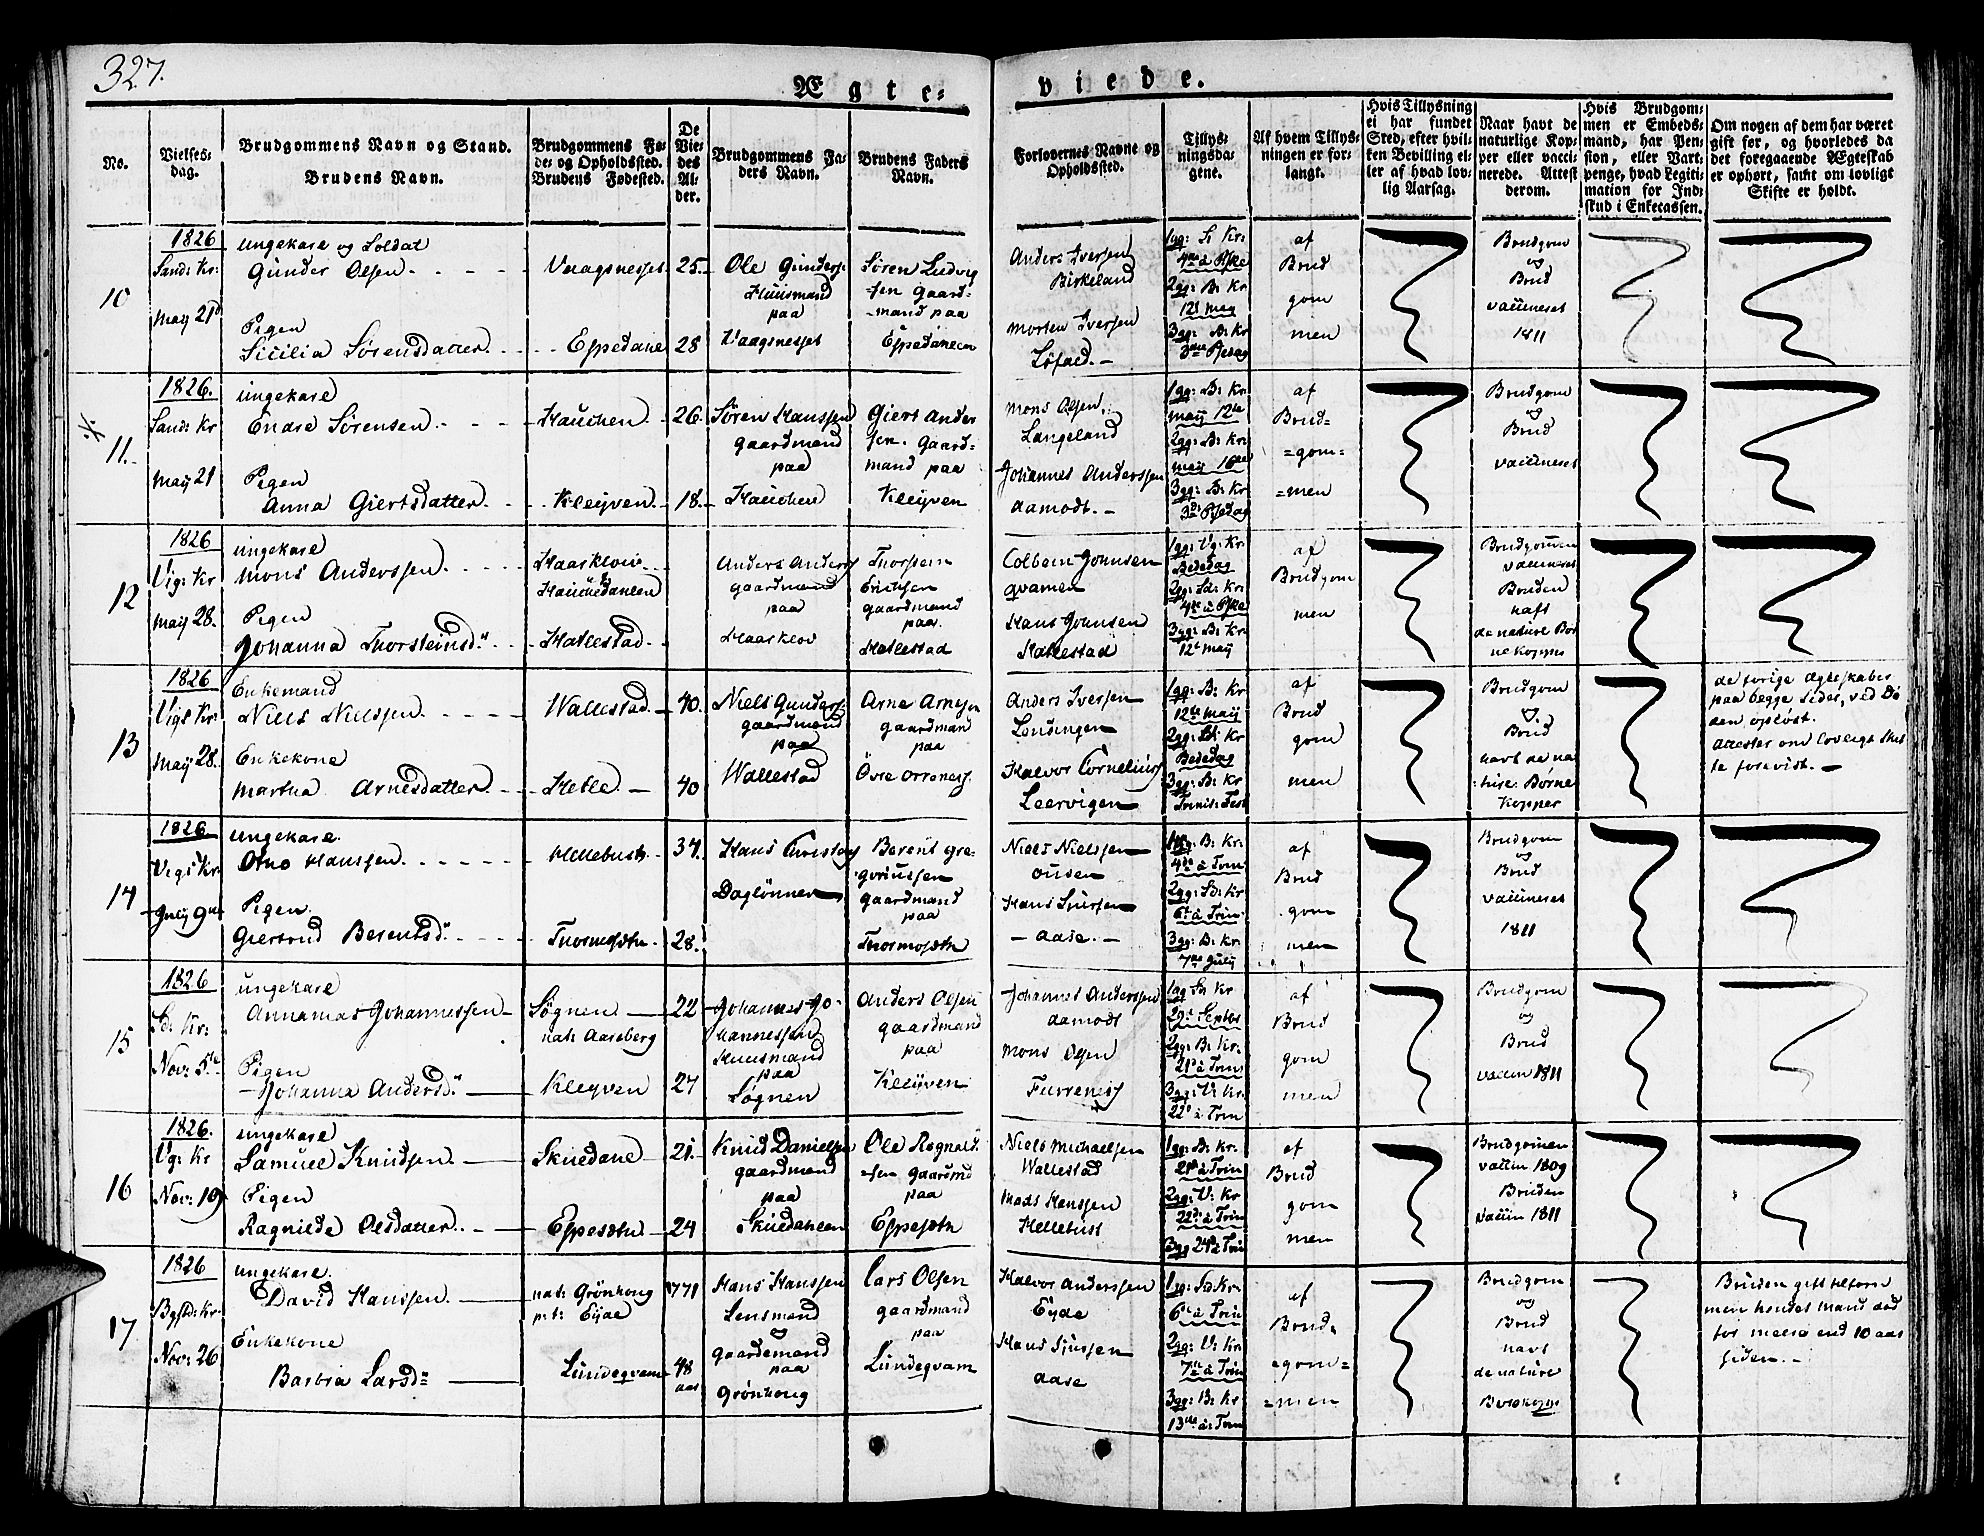 327.
Ægte-
viede.
No.
Vielses-
dag.
Brudgommens Navn og Stand.
Brudens Navn.
Brudgommens Fø-
de- og Opholdssted.
Brudens Fødested.
De
Vie-
des
Al-
der.
Brudgommens Fa-
ders Navn.
Brudens Faders
Navn.
Forlovernes Navne og
Opholdssted.
Tillys-
ningsda-
gene.
Af hvem Tillys-
ningen er for-
langt.
Hvis Tillysning
ei har fundet
Sted, efter hvil-
ken Bevilling el-
ler af hvad lov-
lig Aarsag.
Naar havt de
naturlige Kop-
per eller vacci-
nerede. Attest
derom.
Hvis Brudgom-
men er Embeds-
mand, har Pen-
sion, eller Vart-
penge, hvad Legiti-
mation for Ind-
skud i Enkecassen.
Om nogen af dem har været
gift før, og hvorledes da
det foregaaende Ægteskab
er ophørt, samt om lovligt
Skifte er holdt.
10
1826
Sand: Kr:
May 21d
ungekarl og Soldat
Gunder Olsen
Pigen
Sicilia Sørensdatter
Vaagnesset
Eppedane
25.
28
Ole Gunders:
Huusmand
paa
Vaagnesset
Søren Ludvig
-sen Gaard-
-mand paa
Eppedanen
Anders Iversen
Birkeland
Morten Iversen
Løfald.
1gg: S: Kr:
4de à Pske
2gg: B: Kr
12t May
3gg: B: Kr
3die Psedag
af
Brud
gom
men
Brudgom
og
Brud
vaccineret
1811
11.
1826.
Sand: Kr
May 21
ungekarl
Endre Sørensen
Pigen
Anna Giertsdatter
Hauchen
Kleyven
26.
18.
Søren Hanssen
gaardmand
paa
Hauchen
Giert Ander
sen. Gaard-
mand paa
Kleyven
Mons Olsen,
Langeland
Johannes Anderssen
Aamodt.
1gg: B: Kr
May 12te
2gg: B: Kr
May 16de
3gg: B: Kr
3d: Psedag
af
Brud=
=gom=
=men
Brudgom
og
Brud
vaccineret
12
1826
Vig: Kr
May 28.
ungekarl
Mons Anderssen
Pigen
Johanna Thorsteinsd:
Haarklov
Hauchedahlen
Hatlestad
Anders Anders
gaardmand
paa
Haarklov
Thorstein
Erichsen
gaardmand
paa
Hatlestad
Colbein Johnsen
qvamen
Hans Johnsen
Hatlestad
1gg: Vg: Kr.
Bededag
2gg: Sd: Kr
4de à Pske
3gg: B: Kr
12t May
af
Brudgom
men
Brudgommen
vaccineret
Bruden
haft
de nature Bør
ne kopper
13
1826
Vigs Kr:
May 28.
Enkemand
Niels Nielssen
Enkekone
Martha Arnesdatter
Wallestad
Hetle
40.
40
Niels Gunders:
gaardmand
paa
Wallestad
Arne Arnesen
gaardmand
paa
Øvre Orrenes
Anders Iversen
Lonsingen
Halvor Cornelius
Leervigen
1gg: B: Kr
12te May
2gg: Sd: Kr
Bededag
3gg: B: Kr
Trinit: Fest
af
Brud
gom
men
Brudgom
og
Brud
havt de na-
turl: Børne
Kopper
de forige Ægteskaber
paa begge sider, ved Dø
den opløst.
Attester om lovligt skif
te forevist.
14
1826.
Vigs Kr:
July 9de
ungekarl.
Otho Hanssen
Pigen.
Giertrud Berentsd:
Hellebust
Thormodstn
37.
28.
Hans Christoph
Daglønner
Berent Gre-
goriussen
gaardmand
paa
Thormodstn
Niels Nielssen
ousen
Hans Siursen
Aase.
1gg: B. Kr.
4de à Trin
2gg: Sd: Kr
6te à Trin
3gg: B: Kr.
7de July
af
Brud
gom
men
Brudgom
og
Brud
vaccineret
1811
15
1826
Sd: Kr:
Nov: 5te
ungekarl
Annanias Johannessen
Pigen
Johanna Andersd:
Søgnen
nat: Aarberg
Kleyven
22
27
Johannes Jo-
hannessen
Huusmand
paa
Søgnen
Anders Olsen
gaardmand
paa
Kleyven
Johannes Anderssen
Aamodt
Mons Olsen
Furrenes
1gg Sd Kr.
29d Septbr
2gg: B: Kr.
21de à Trin
3gg: V: Kr.
22d à Trin
af
Brud
gom
men
Brudgom
og
Brud
vaccin 1811
16
1826.
Vg: Kr
Nov: 19
ungekarl
Samuel Knudsen.
Pigen
Ragnilde Olsdatter.
Skuedahl
Eppestn
21.
24
Knud Danielsen
gaardmand
paa
Skuedahlen
Ole Ragnald
-sen gaardmd
paa
Eppestn
Niels Michaelsen
Wallestad
Mads Hanssen
Hellebust
1gg: B: Kr.
21de à Trin
2gg: V: Kr
22de à Trin
3gg 24d à Trin
af
Brud
gom
men
Brudgommen
vaccin 1809
Bruden
vaccin 1811
17
1826
Bygstd: Kr.
Nov: 26
ungekarl.
David Hanssen
Enkekone
Barbra Larsd=
nat: Grønhoug
p.t: Eyde
Lundeqvam
48
aar
Hans Hanssen
Lensmand
og
gaardemand
paa
Grønhoug
Lars Olsen
gaardmand
paa
Lundeqvam
Halvor Anderssen
Eyde
Hans Siursen
Aase
1gg: Sd Kr.
6te à Trin
2gg: V: Kr
7de à Trin
3gg: B: Kr
13de à: Trin
af
Brud=
=gom=
=men
Brudgom
og
Brud
havt
de nature
Børkopper
Bruden gift tilforn
men hendes Mand død
for meere end 10 aar
siden.